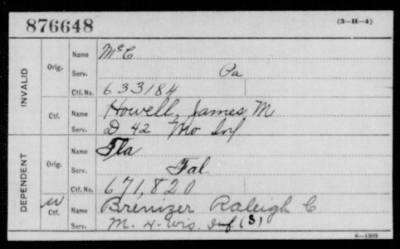 876648 (3-H-4)
INVALID
Orig. Name McC
Serv. Pa
Ctf. No. 633184
Ctf. Name Howell, James M
Serv. D 42 Mo Inf
DEPENDENT
Orig. Name Fla
Serv. Fal
Ctf. No. 671,820
W Ctf. Name Brenizer Raleigh C
Serv. M. 4-Wis. Inf (3)
6-1389